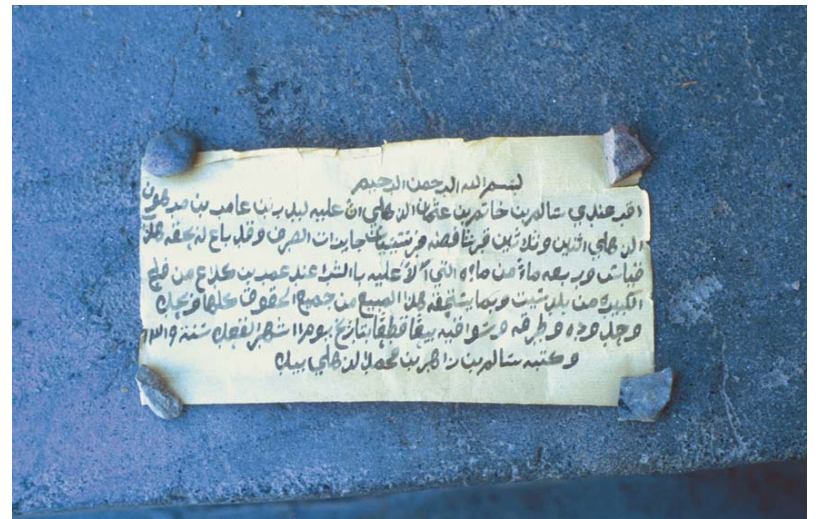 بسم الله الرحمن الرحيم
اقر عندي سالم بن خاتم بن عثمان الذهلي ان عليه لبدر بن عامر بن
الذهلي اثنين وثلاثين قرشا فضة فرنسيات جايدات الصرف وقد باع له بحقه هذا
وربعه ماء من ماؤه التي آلا عليه باالشرا عند بن من فلج
الكبيره من بلد شيت وبما يستحقه هذا المبيع من جميع الحقوق كلها
وحدوده وطرقه وسواقيه بيعا قطعا بتاريخ يوم ١١ شهر القعده سنة
وكتبه سالم بن زاهر بن محمد الذهلي بيده